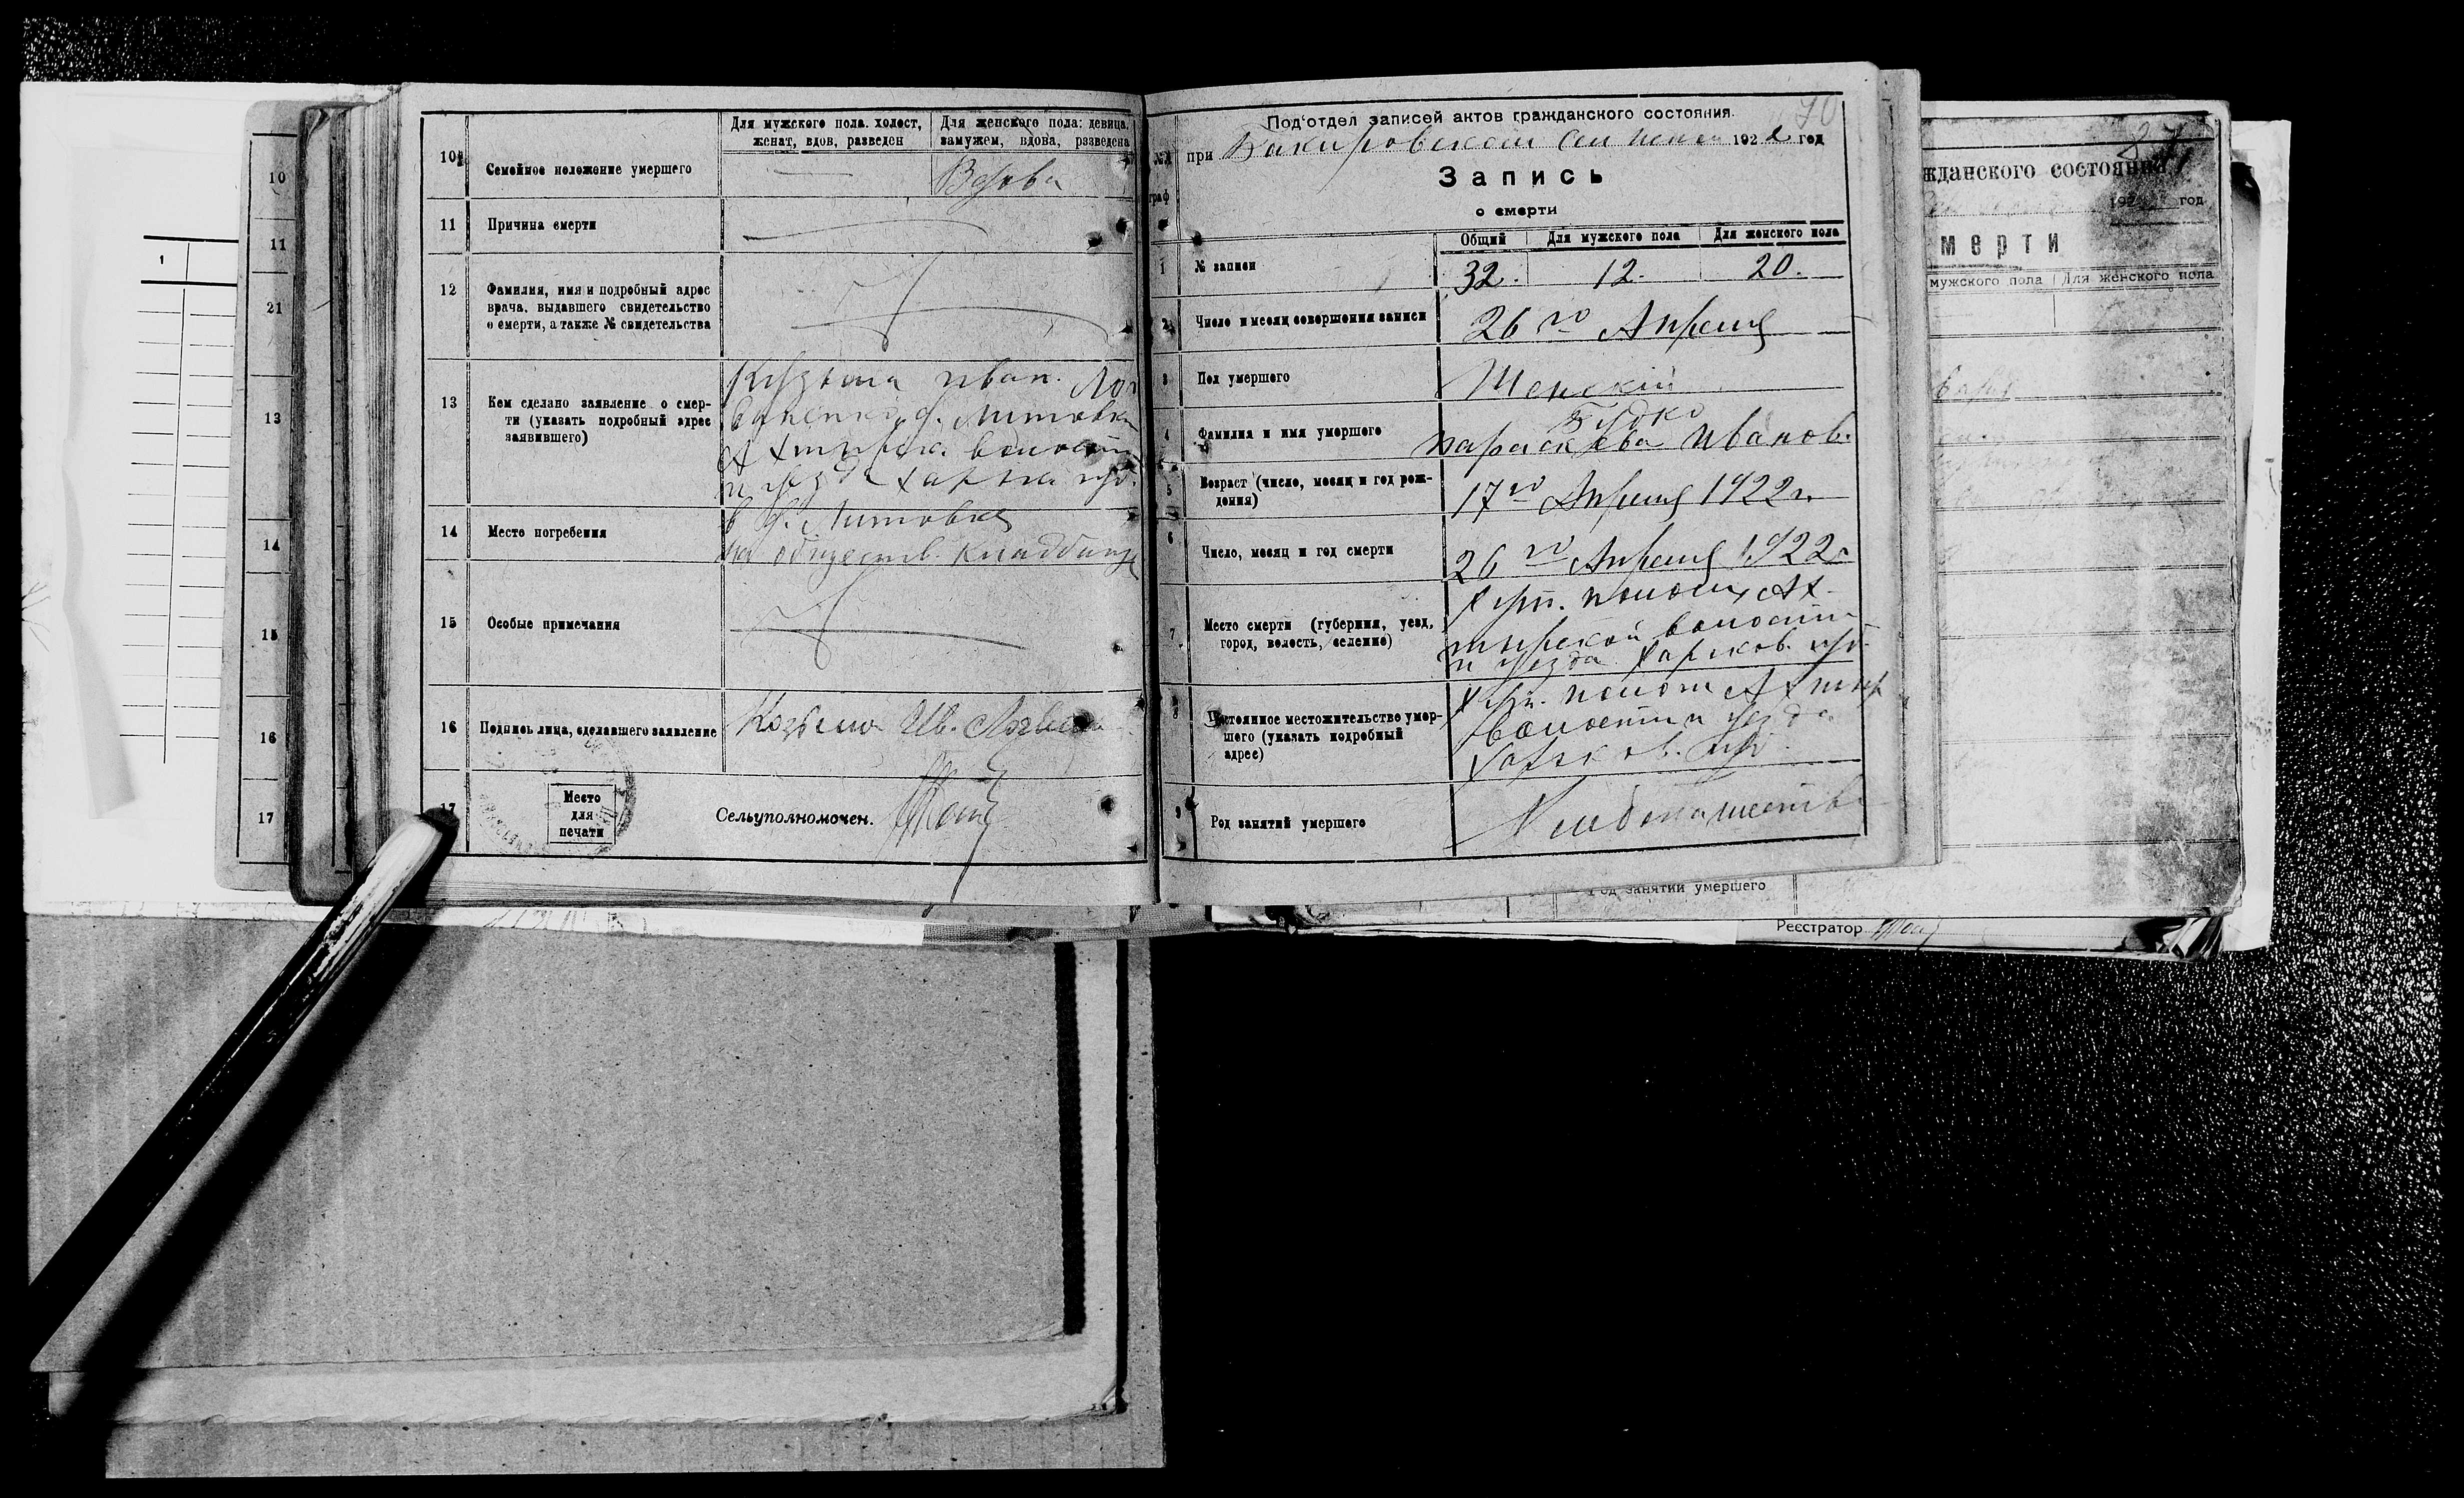 10
11
21
13
14
15
16
17
1
10
Семейное положение умершего
Для мужского пола. холост,
женат, вдов, разведен
Для женского пола: девица,
замужем, вдова, разведена
Вдова
11
Причина смерти
12
Фамилия, имя и подробный адрес
врача, выдавшего свидетельство
о смерти, а также № свидетельства
13
Кем сделано заявление о смер-
ти (указать подробный адрес
заявившего)
Кузьма Иван.
Литовка
Ахтырск. волости
и уезда Харьк губ.
14
Место погребения
в д. Литовке
на обществ. кладбище
15
Особые примечания
16
Подпись лица, сделавшего заявление
Козьма Ив.
17
Место
для
печати
Сельуполномочен.
70
Под'отдел записей актов гражданского состояния.
при Бакировском 1922 год
Запись
о смерти
Общий
Для мужского пола
Для женского пола
1
№ записи
32.
12.
20.
2
Число и месяц совершения записи
26 го Апреля
3
Пол умершего
Женский
4
Фамилия и имя умершего
Будко
параскева Иванов.
5
Возраст (число, месяц и год рож-
дения)
17 го Апреля 1922 г.
6
Число, месяц и год смерти
26 го Апреля 1922 г
7
Место смерти (губерния, уезд,
город, волость, селение)
Ах-
тырской волости
и уезда Харьков. губ.
8
Постоянное местожительство умер-
шего (указать подробный
адрес)
Ахтыр
волости и уезда
Харьков. губ.
9
Род занятий умершего
Хлебопашество
жданского состояния
192 год
мерти
мужского пола
Для женского пола
Род занятий умершего
Реєстратор